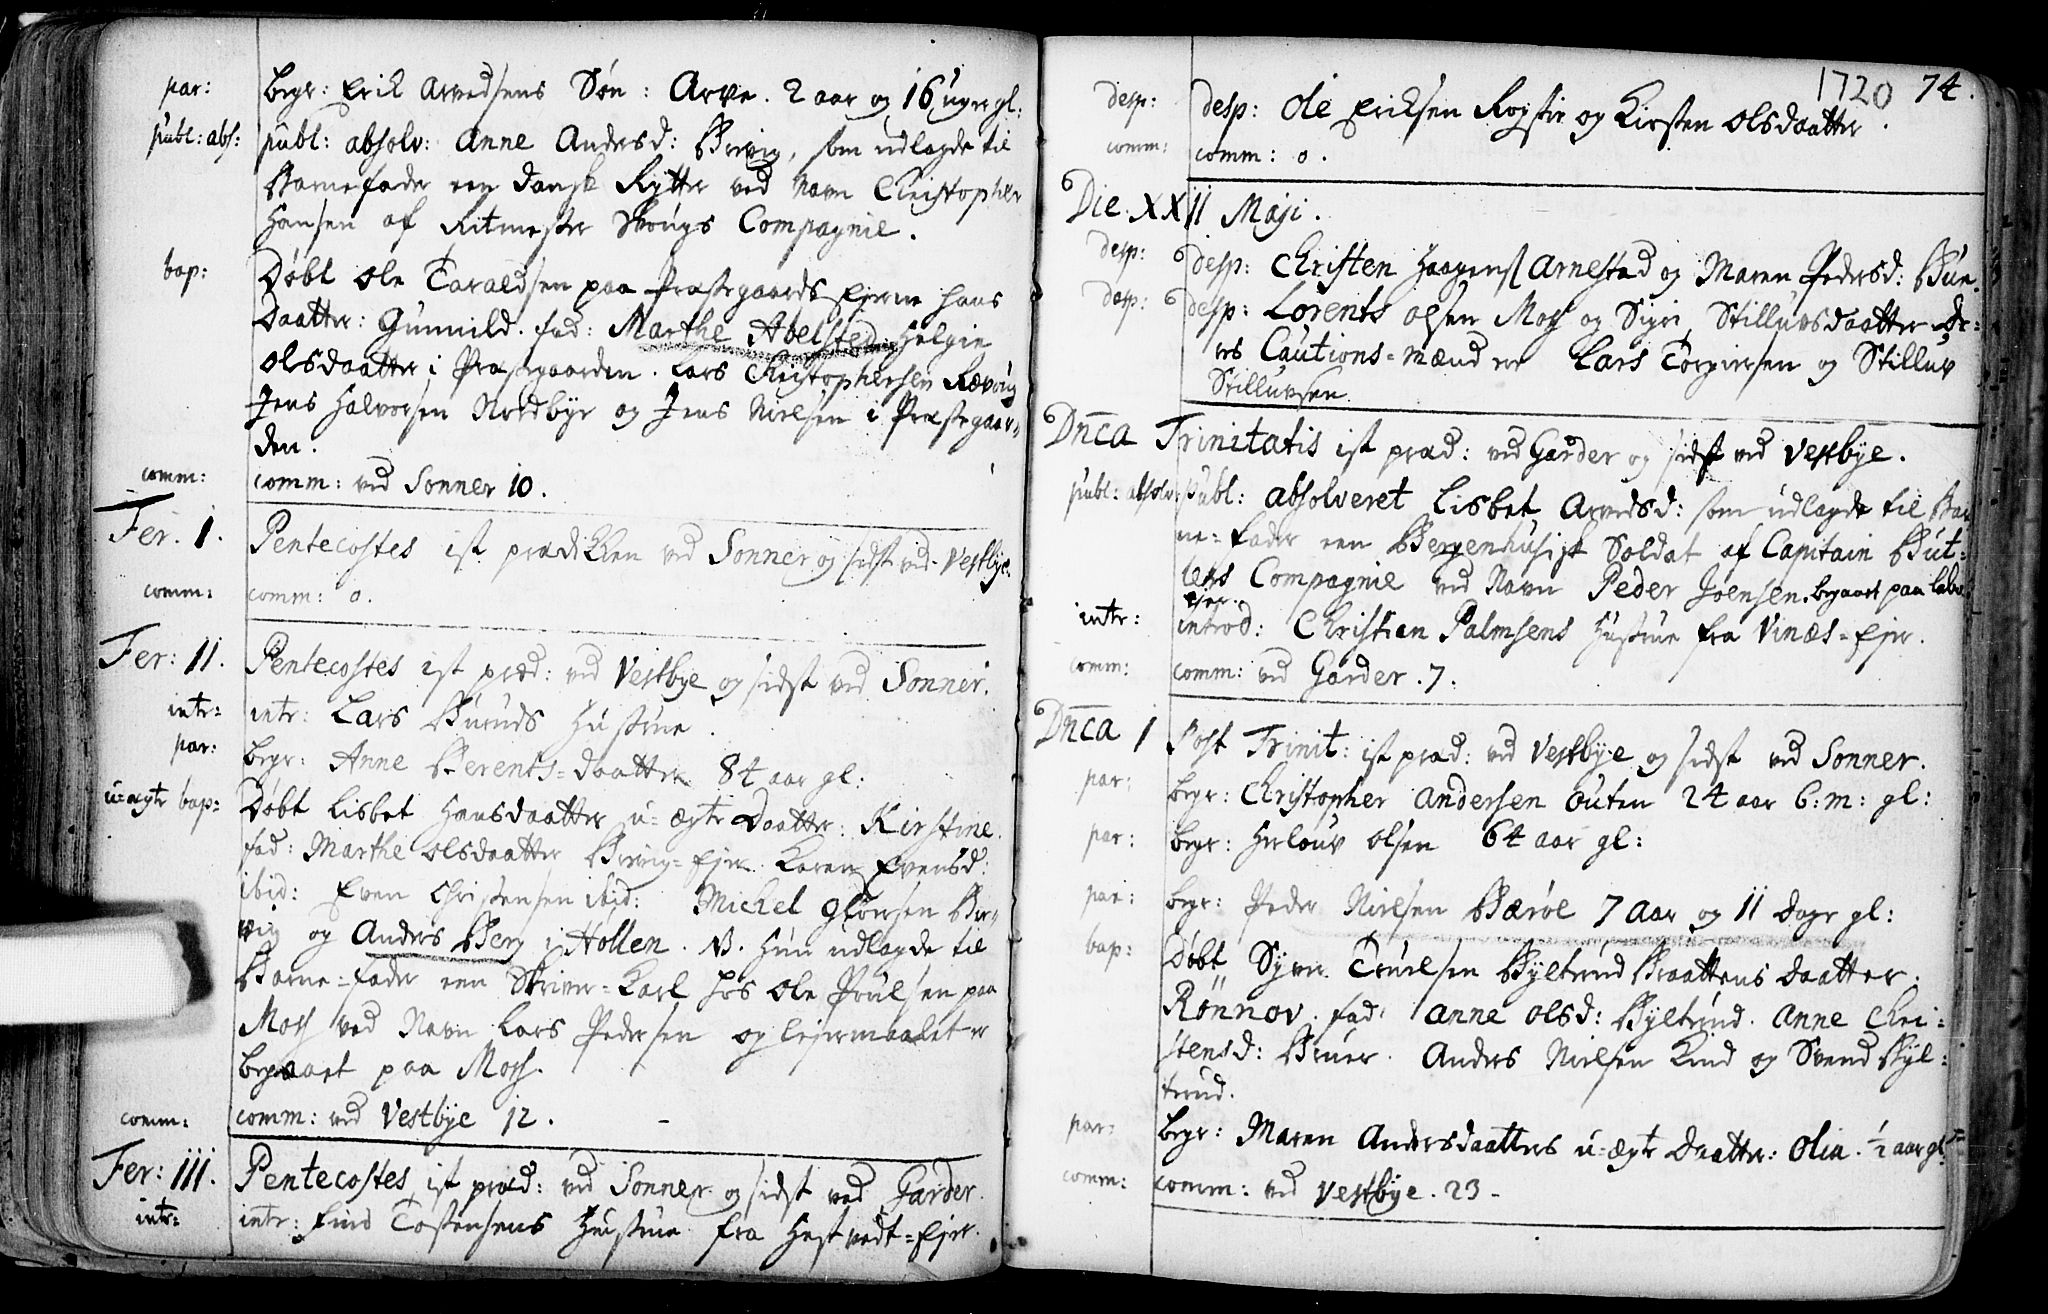 par: begr: Erik Arvedsens Søn: Arve. 2 aar og 16 uger gl:
publ: abs: publ: absolv: Anne Andersd: Brevig, som udlagde til
Barnefader een dansk Rytter ved Navn Christopher
Hansen af Ritmester Compagnie.
bap: Døbt Ole Taraldsen paa Præstegaards Ejerne hans
Daatter: Gunnild. fad: Marthe Abelsted, Helgie
Olsdaatter i Præstegaarden. Lars Christophersen
Jens Halvorsen Nordbye og Jens Nielsen i Præstegaar-
den.
comm: comm: ved Sonner 10.
Fer. I. Pentecostes ist prædikken ved Sonner og sidst ved Vestbye.
comm: comm: 0.
Fer: II. Pentecostes ist præd: ved Vestbye og sidst ved Sonner.
intr: intr: Lars Buruds Hustrue.
par: begr: Anne Berents-daatter 84 aar gl:
u-ægte bap: Døbt Lisbet Hansdaatter u-ægte Daatter: Kirstine.
fad: Marthe Olsdaatter Brevig-Ejer. Karen Evensd:
ibid: Even Christensen ibid: Michel Glonsen Bre-
vig og Anders Berg i Hôllen. NB. Hun udlagde til
Barne-fader een Skriver-Karl hos Ole Poulsen paa
Moss ved Navn Lars Pedersen og lejermaalet er
begaaet paa Moss.
comm: comm: ved Vestbye 12.
Fer: III. Pentecostes ist præd: ved Sonner og sidst ved Garder.
intr: intr: Find Tostensens Hustrue fra Hestvedt-Ejer.
1720 74.
desp: desp: Ole Eriksen og Kirsten Olsdaatter.
comm: comm: 0.
Die XXII Maji.
desp: desp: Christen Haagens Arnestad og Maren Pedersd: Bue.
desp: desp: Lorents Olsen Moss og Sigri Stilluvsdaatter. De-
res Cautions-mænd er Lars Torgiersen og Stilluv
Stilluvsen.
Dnca Trinitatis ist præd: ved Garder og sidst ved Vestbye.
publ: absolv: publ: absolveret Lisbet Arvedsd: som udlagde til Bar
ne-fader een Bergenhusisk Soldat af Capitain But-
lers Compagnie ved Navn Peder Joensen. begaaet paa
Ejer.
intr: introd: Christian Palmsens Hustrue fra Vinæs-Ejer.
comm: comm: ved Garder. 7.
Dnca I Post Trinit: ist præd: ved Vestbye og sidst ved Sonner.
par: begr: Christopher Andersen Outen 24 aar 6: m: gl:
par: begr: Herlouv Olsen 64 aar gl:
par: begr: Peder Nielsen Bærøe 7 aar og 11 dage gl:
bap: Døbt Syver Truelsen Byltrud Braattens Daatter.
Rönnov. fad: Anne Olsd: Byltrud. Anne Chri-
stensd: Bruer. Anders Nielsen Kind og Svend Byl-
trud.
par: begr: Maren Andersdaatters u-ægte Daatter: Olia. 1/2 aar gl:
comm: comm: ved Vestbye. 23.